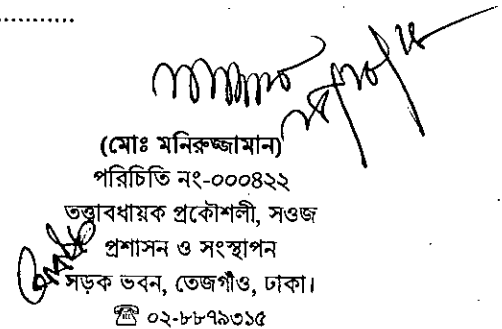 (মোঃ মনিরুজ্জামান)
পরিচিতি নং-০০০৪২২
তত্ত্বাবধায়ক প্রকৌশলী, সওজ
প্রশাসন ও সংস্থাপন
সড়ক ভবন, তেজগাঁও, ঢাকা।
☏ ০২-৮৮৭৯৩১৫